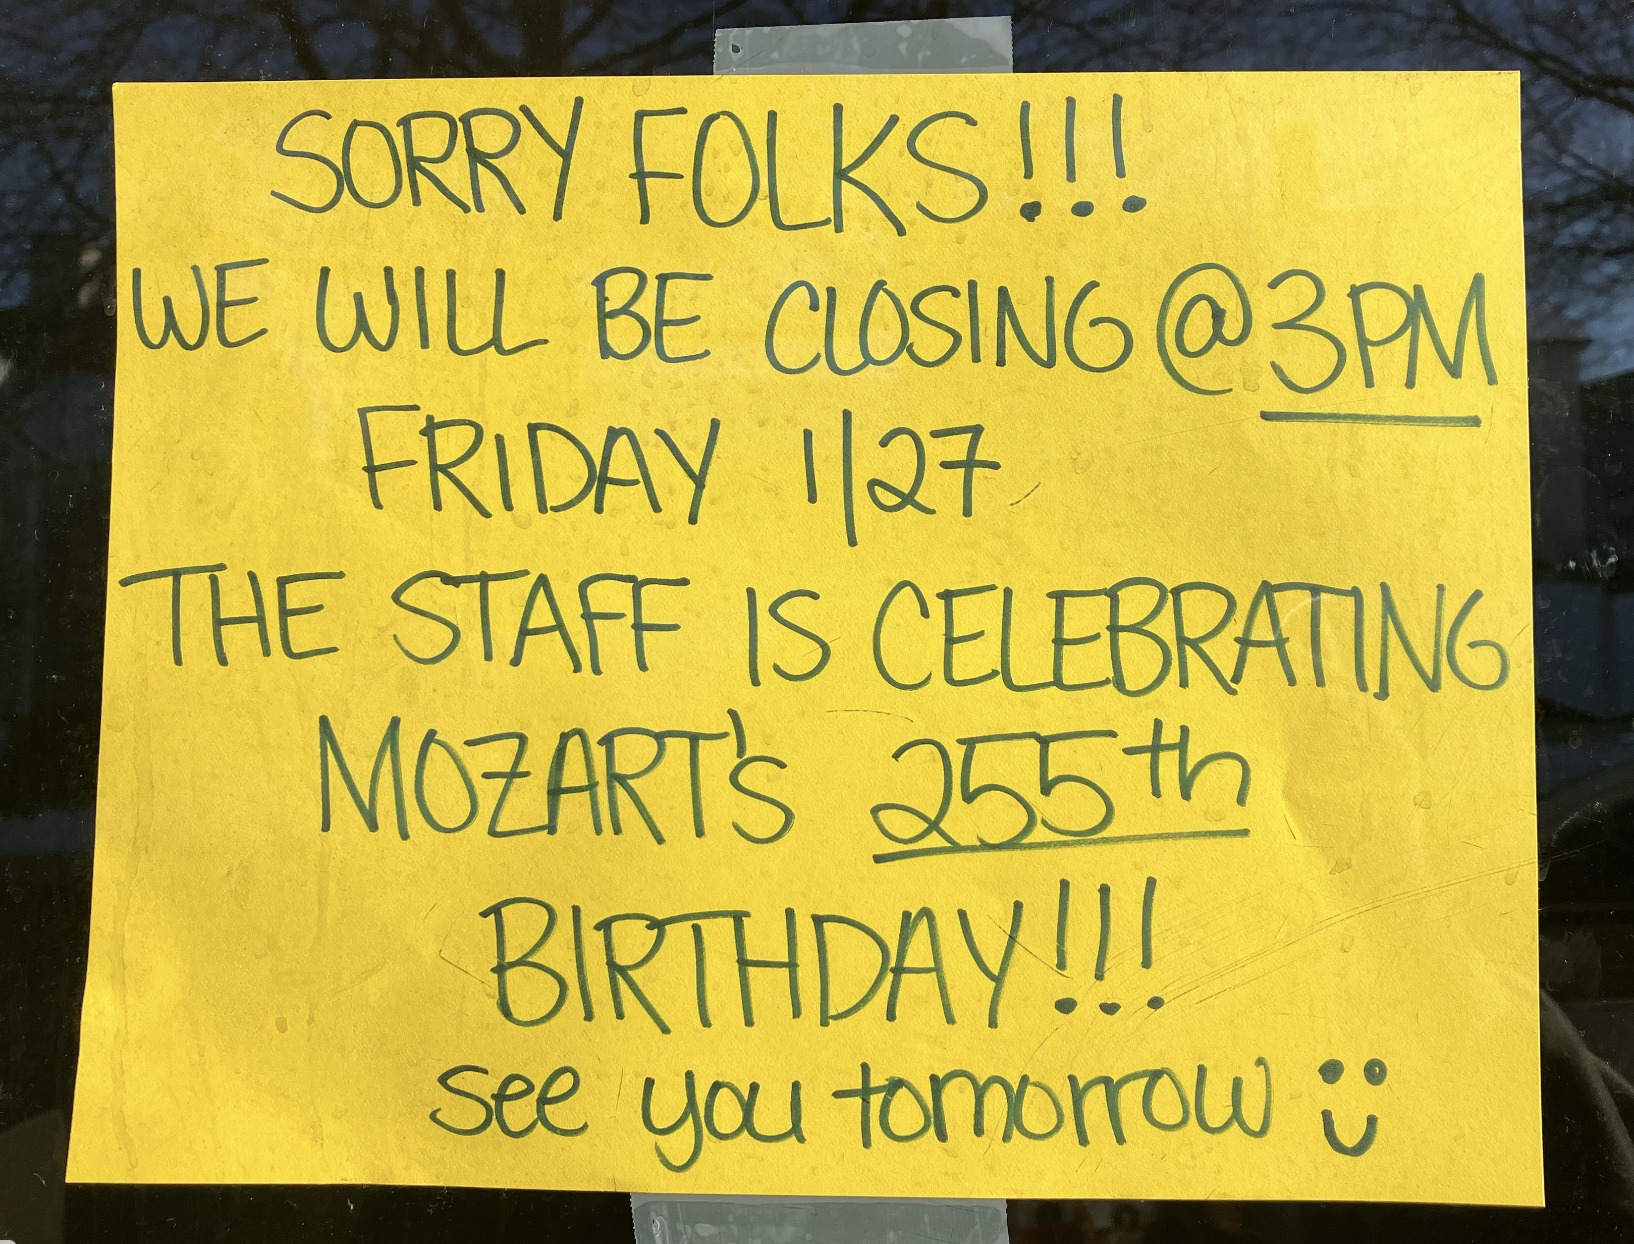 SORRY FOLKS!!!
WE WILL BE CLOSING @ 3PM
FRIDAY 1/27
THE STAFF IS CELEBRATING
MOZART'S 255th
BIRTHDAY!!!
see you tomorrow